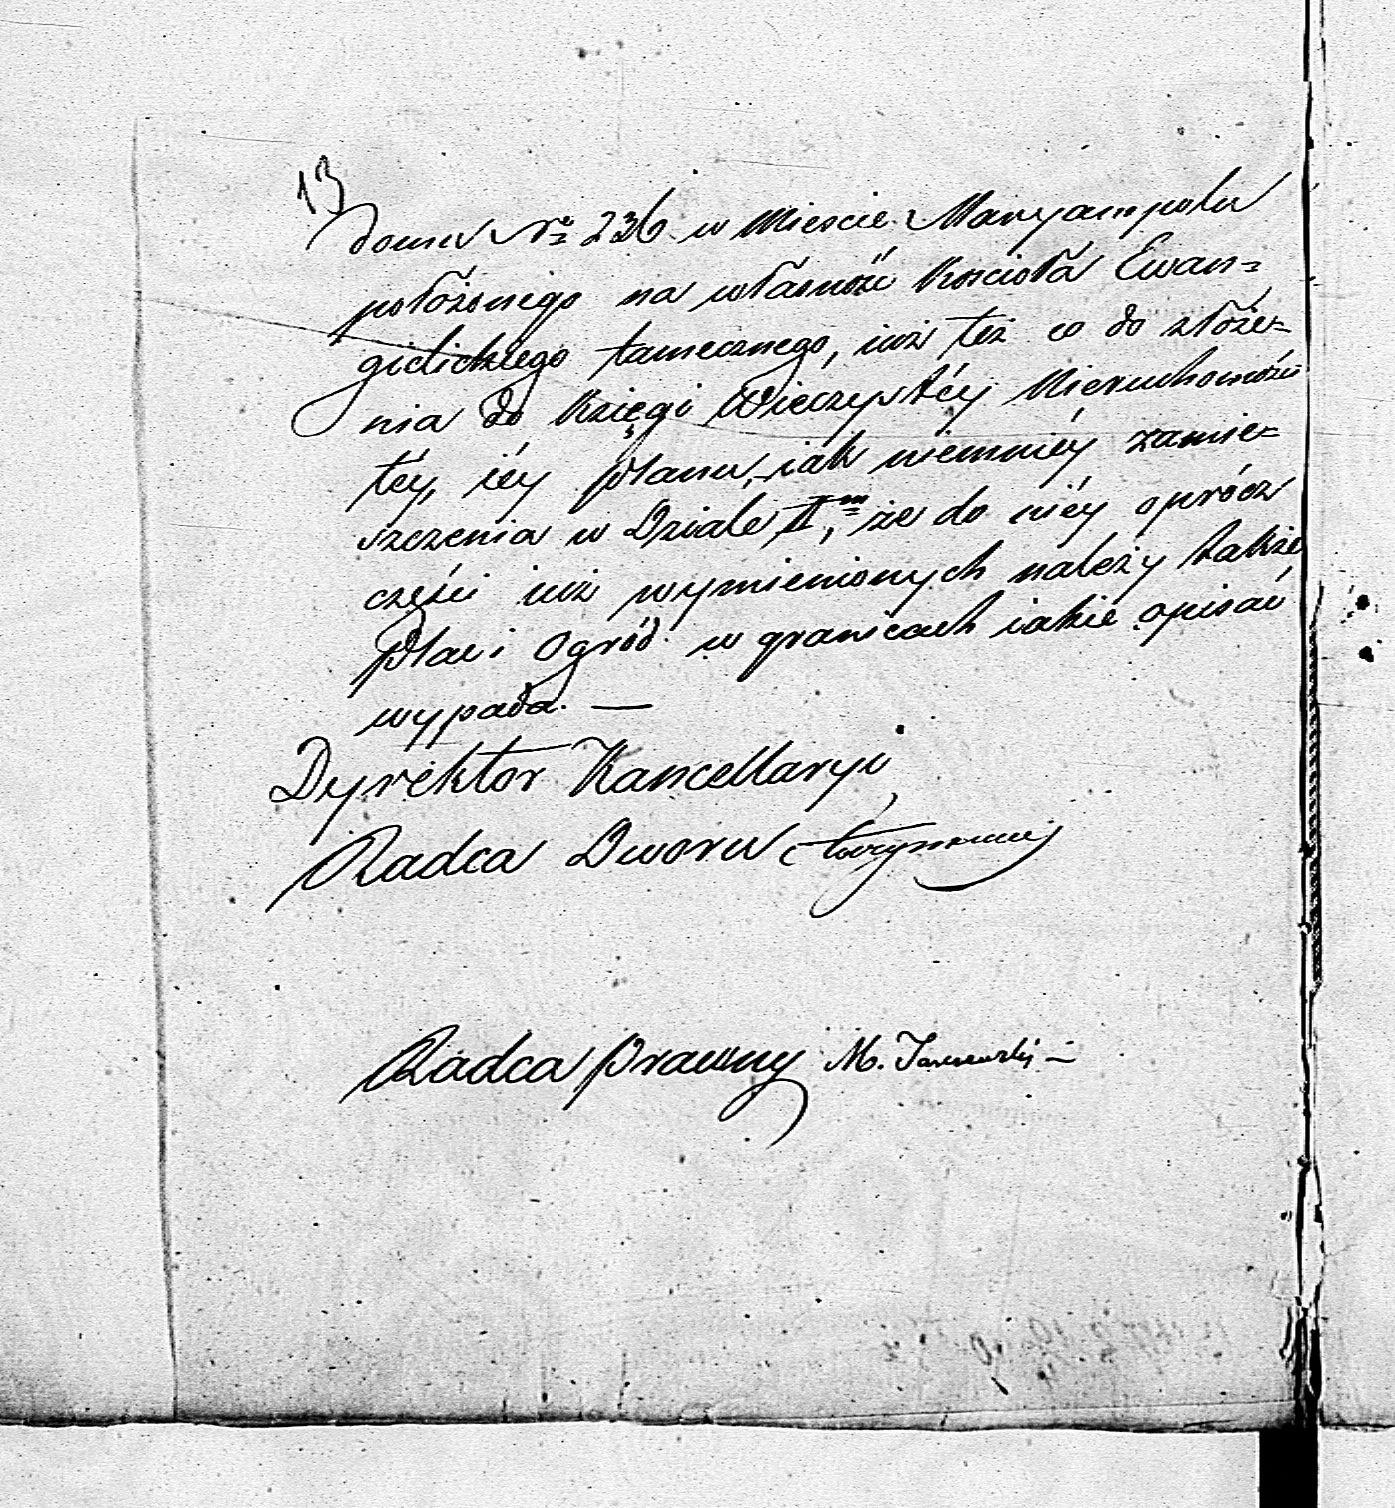 13
domu Nro 236 w Miescie Maryampolu
położonego na własność Kościoła Ewan=
gielickiego tamecznego, iuż też co do złoże=
nia do Księgi Wieczystéy Nieruchomości
téy, iéy planu, iak niemniéy zamie=
szczenia w Dziale IIm, że do niéy oprócz
części iuż wymienionych należy także
Plac i Ogród w granicach iakie opisać
wypada. —
Dyrektor Kancellaryi
Radca Dworu
Radca Prawny M.